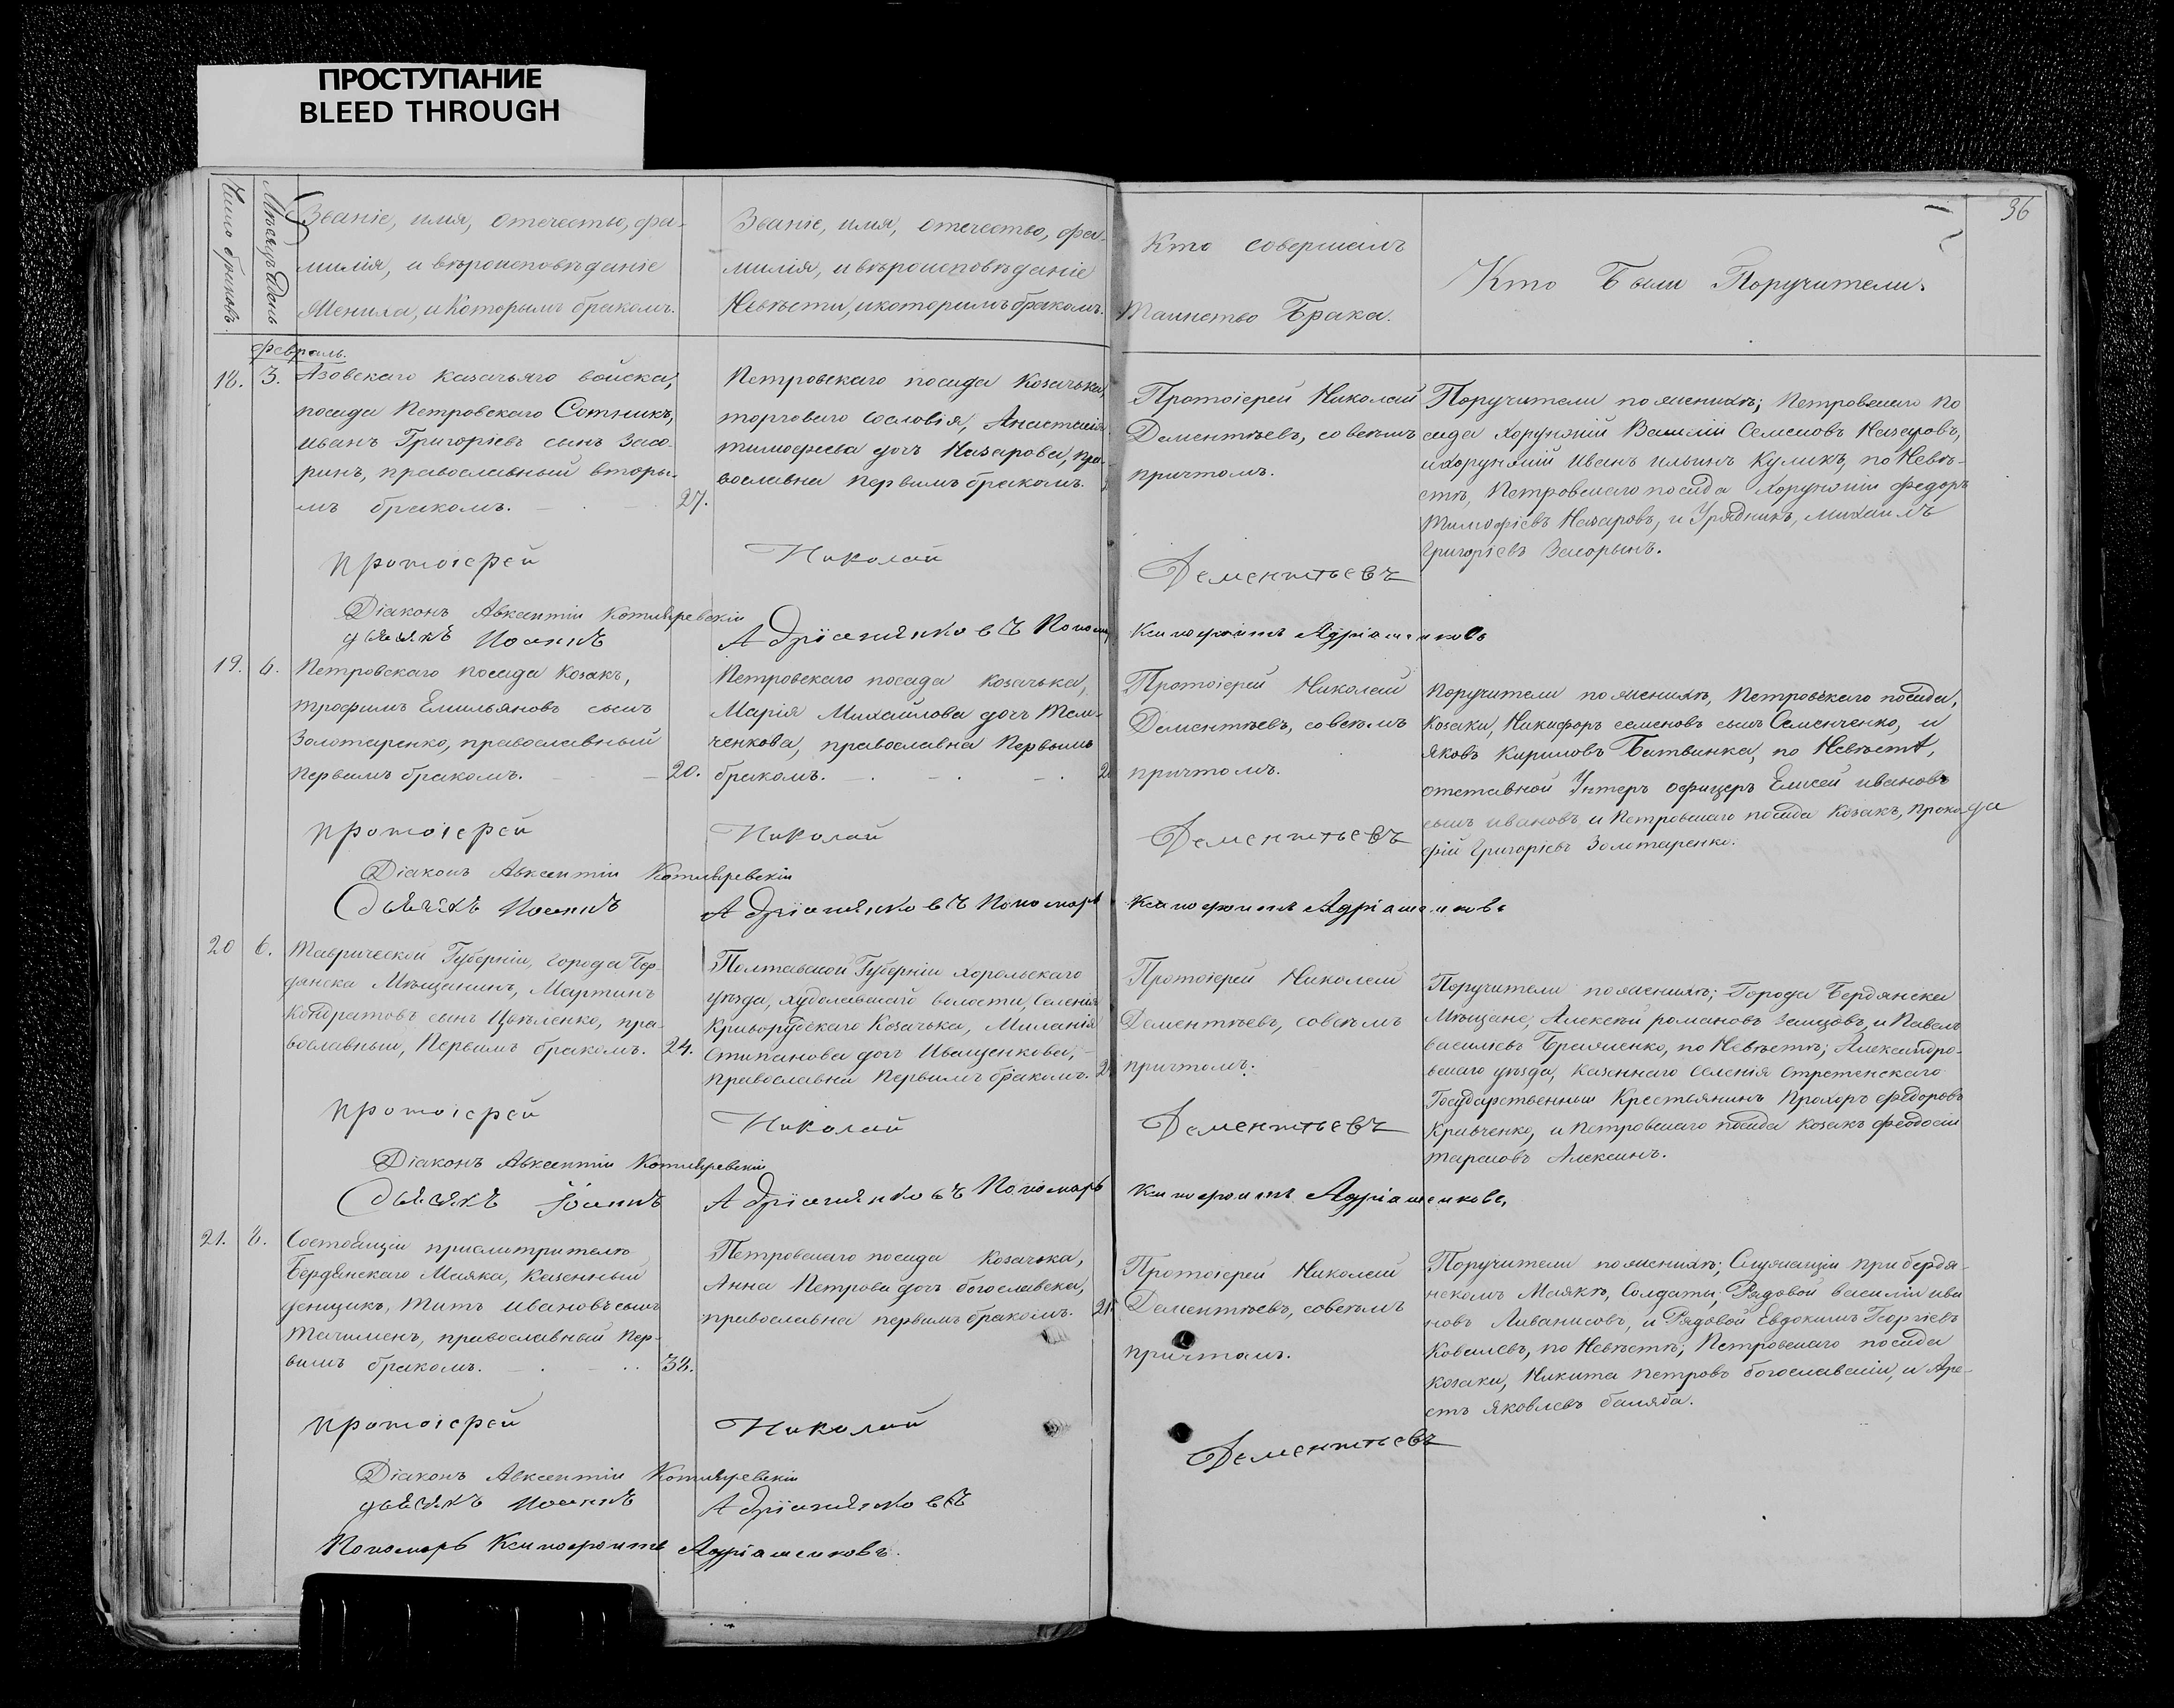 ПРОСТУПАНИЕ
BLEED THROUGH
36
Число браковъ.
Мѣсяцъ и день
Званіе, имя, отечество, фа-
милія, и вѣроисповѣданіе
Жениха, и Которымъ бракомъ.
Званіе, имя, отечество, фа-
милія, и вѣроисповѣданіе
Невѣсты, и которымъ бракомъ.
Кто совершалъ
Таинство Брака.
Кто Были Поручители.
февраль.
18. 3.
Азовскаго казачьяго войска,
посада Петровскаго Сотникъ,
иванъ Григоріевъ сынъ Засо-
ринъ, православный вторы-
мъ бракомъ. 27.
Петровскаго посада Козачька,
торговаго сословія, Анастасія
тимофеева дочь Назарова, пра-
вославна первымъ бракомъ.
Протоіерей Николай
Дементьевъ, со всѣмъ
причтомъ.
Поручители по женихѣ; Петровскаго по
сада Хорунжій Василій Семеновъ Назаровъ,
и хорунжій Иванъ ильинъ Куликъ, по Невѣ-
стѣ, Петровскаго посада Хорунжій федоръ
Тимофіевъ Назаровъ, и Урядникъ, михаилъ
Григоріевъ Засорынъ.
протоіерей Николай Дементьевъ
Діаконъ Авксентій Котляревскій
дьячкъ Иоаннъ Адріяшенковъ Поном
Ксинофонтъ Адріашенковъ
19. 6.
Петровскаго посада Козакъ,
трофимъ Емильяновъ сынъ
Золотаренко, православный
первымъ бракомъ. 20.
Петровскаго посада Козачька,
Марія Михайлова дочь Тем-
ченкова, православна Первымъ
бракомъ.
Протоіерей Николай
Дементьевъ, со всѣмъ
причтомъ.
Поручители по женихѣ, Петровскаго посада,
Козаки, Никифоръ семеновъ сынъ Семенченко, и
яковъ Кириловъ Батвинка, по Невѣстѣ,
отставной Унтеръ офицеръ Елисей ивановъ
сынъ ивановъ и Петровскаго посада Козакъ, Проко-
фій Григоріевъ Золотаренко.
протоіерей Николай Дементьевъ
Діаконъ Авксентій Котляревскій
дьячкъ Иоаннъ Адріяшенковъ Пономарь
Ксинофонтъ Адріашенковъ
20 6.
Таврической Губерніи, города Бер-
дянска Мѣщанинъ, Мартинъ
Кондратовъ сынъ Цѣленко, пра-
вославный, Первымъ бракомъ. 24.
Полтавской Губерніи хорольскаго
уѣзда, худолѣевскаго волости, селенія
Криворудскаго Козачька, Миланія
Стипанова дочь Иващенкова,
православна Первымъ бракомъ.
Протоіерей Николай
Дементьевъ, совсѣмъ
причтомъ.
Поручители по женихѣ; Города Бердянска
Мѣщане, Алексѣй романовъ Земцовъ, и Павелъ
васильевъ Браженко, по Невѣстѣ; Александро-
вскаго уѣзда, Казеннаго селенія Стретенскаго
Государственный Крестьянинъ Прохоръ федоровъ
Кривченко, и Петровскаго посада козакъ феодосій
тарасовъ Алексинъ.
протоіерей Николай Дементьевъ
Діаконъ Авксентій Котляревскій
дьячкъ Іоаннъ Адріяшенковъ Пономарь
Ксинофонтъ Адріашенковъ,
21. 8.
Состоящій при смотрителѣ
Бердянскаго Маяка, Казенный
денщикъ, титъ ивановъ сынъ
Тачименъ, православный пер-
вымъ бракомъ. 38.
Петровскаго посада Козачька,
Анна Петрова дочь богославска,
православна первымъ бракомъ. 21.
Протоіерей Николай
Дементьевъ, совсѣмъ
причтомъ.
Поручители по женихѣ; Служащіи при бердя-
нскомъ Маякѣ, Солдаты; Рядовой василій ива
новъ Ливанисовъ, и Рядовой Евдокимъ Георгіевъ
Ковалевъ, по Невѣстѣ; Петровскаго посада
козаки, Никита петровъ богославскій, и Аре-
стъ яковлевъ баляба.
протоіерей Николай Дементьевъ
Діаконъ Авксентій Котляревскій
дьячкъ Иоаннъ Адріяшенковъ
Пономарь Ксинофонтъ Адріашенковъ.